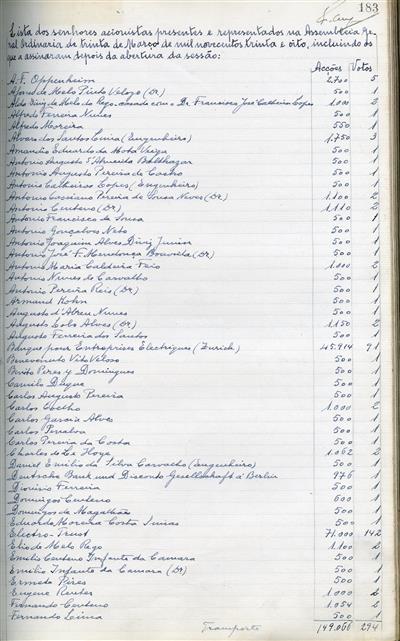 183
Lista dos senhores acionistas presentes e representados na Assembleia Ge-
ral Ordinaria de trinta de Março de mil novecentos trinta e oito, incluindo os
que a assinaram depois da abertura da sessão:
Acções Votos
A. F. Oppenheim 2.700 5
Afonso de Melo Pinto Veloso (Dr) 500 1
de Melo do Rego casada com o Dr. Francisco José Caldeira Lopes 1.000 2
Alfredo Ferreira Nunes 500 1
Alfredo Moreira 550 1
Alvaro dos Santos Lima (Engenheiro) 1.750 3
Amandio Eduardo da Mota Veiga 500 1
Antonio Augusto d'Almeida Balthazar 500 1
Antonio Augusto Pereira de Castro 500 1
Antonio Calheiros Lopes (Engenheiro) 500 1
Antonio Cassiano Pereira de Sousa Neves (Dr) 1.100 2
Antonio Centeno (Dr) 1.110 2
Antonio Francisco de Sousa 500 1
Antonio Gonçalves Neto 500 1
Antonio Joaquim Alves Diniz Junior 500 1
Antonio José F. Mendonça Boavida (Dr) 500 1
Antonio Maria Caldeira Feio 1.000 2
Antonio Nunes de Carvalho 500 1
Antonio Pereira Reis (Dr) 500 1
Armand Kohn 500 1
Augusto d'Abreu Nunes 500 1
Augusto Lobo Alves (Dr) 1.150 2
Augusto Ferreira dos Santos 500 1
Banque pour Entreprises Electriques (Zurich) 45.914 91
Benevenuto Vito Veloso 500 1
Benito Peres y Domingues 500 1
Camilo Duque 500 1
Carlos Augusto Pereira 500 1
Carlos Coelho 1.000 2
Carlos Garcia Alves 500 1
Carlos Penalva 500 1
Carlos Pereira da Costa 500 1
Charles de La Hoya 1.062 2
Daniel Emilio da Silva Carvalho (Engenheiro) 500 1
Deutsche Bank und Disconto Gesellschaft à Berlin 976 1
Dionisio Ferreira 500 1
Domingos Centeno 600 1
Domingos de Magalhães 500 1
Eduardo Moreira Costa Simas 500 1
Electro-Trust 71.000 142
Elio de Melo Rego 1.100 2
Emilio Centeno Infante da Camara 500 1
Emilio Infante da Camara (Dr) 500 1
Ermete Pires 500 1
Eugene Reuter 1.000 2
Fernando Centeno 1.054 2
Fernando Leima 500 1
Transporte 149.066 294